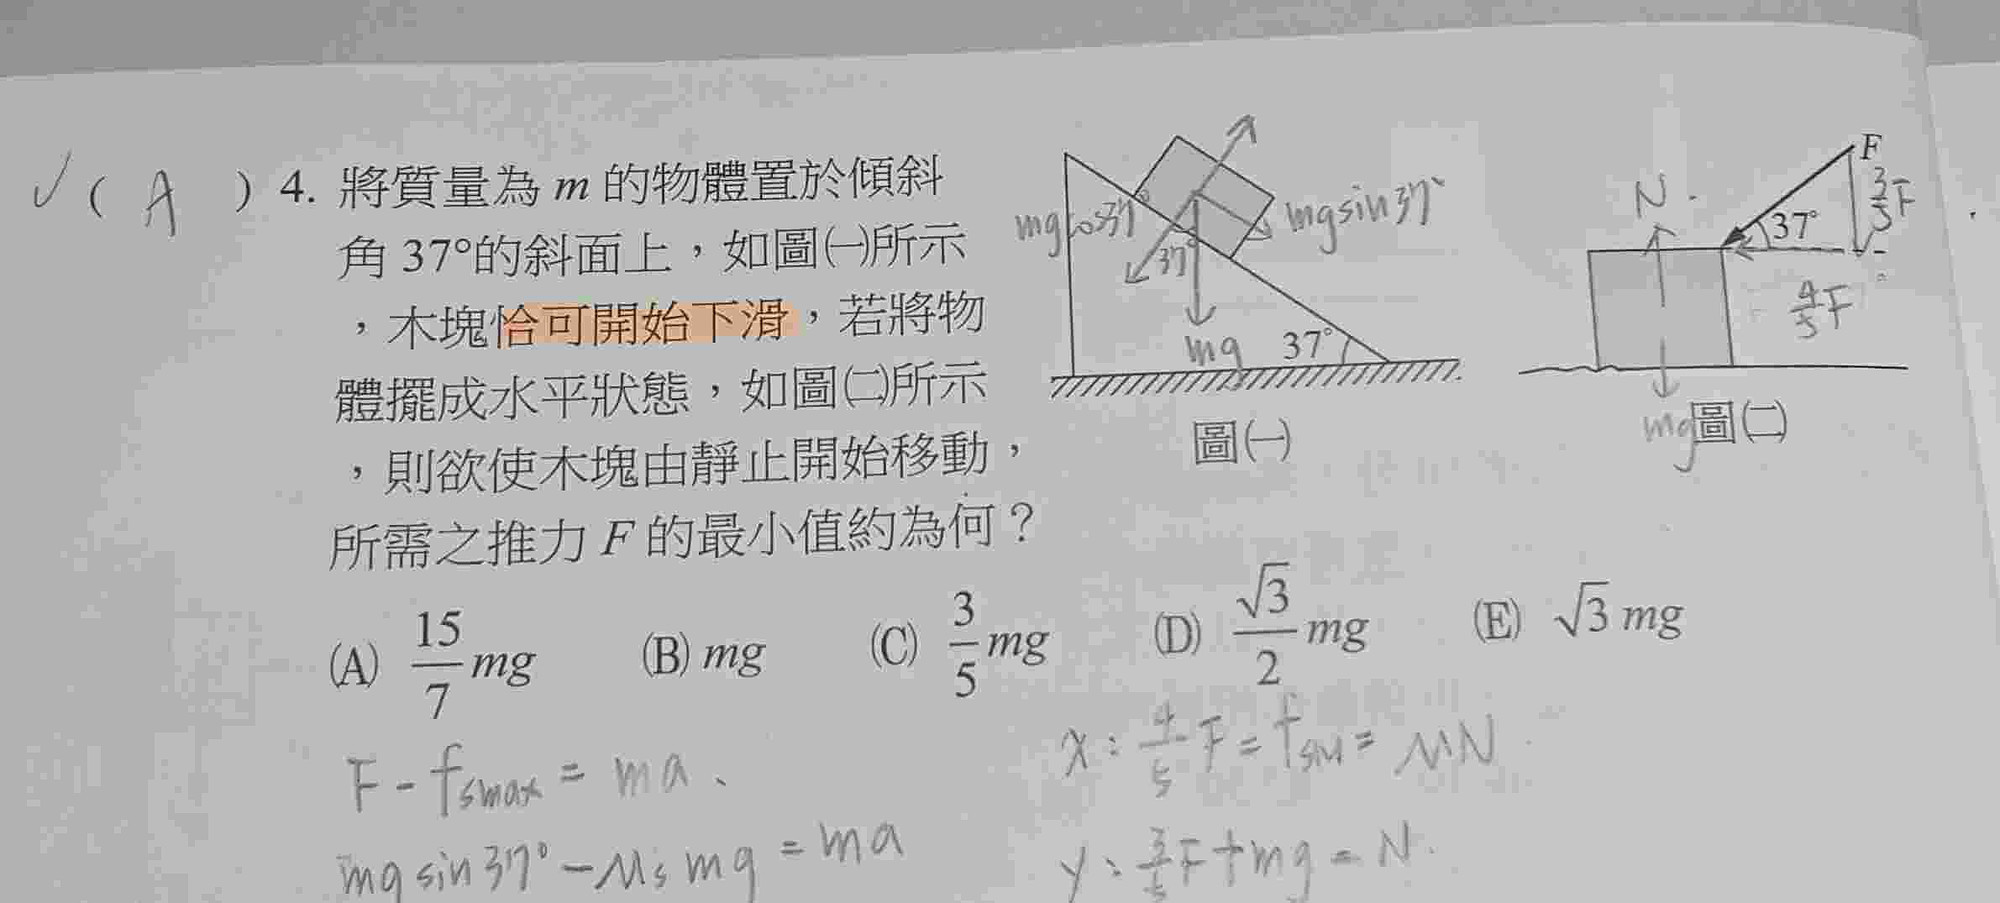 ✓( A ) 4. 將質量為 m 的物體置於傾斜
角 37°的斜面上,如圖㈠所示
,木塊恰可開始下滑,若將物
體擺成水平狀態,如圖㈡所示
,則欲使木塊由靜止開始移動,
所需之推力 F 的最小值約為何?
mgcos37°
mgsin37°
37°
mg
37°
圖㈠
N
F
3/5 F
37°
4/5 F
mg
圖㈡
(A) 15/7 mg (B) mg (C) 3/5 mg (D) √3/2 mg (E) √3 mg
F - fsmax = ma
mg sin37° - μs mg = ma
x: 4/5 F = fsM = μN
y: 3/5 F + mg = N